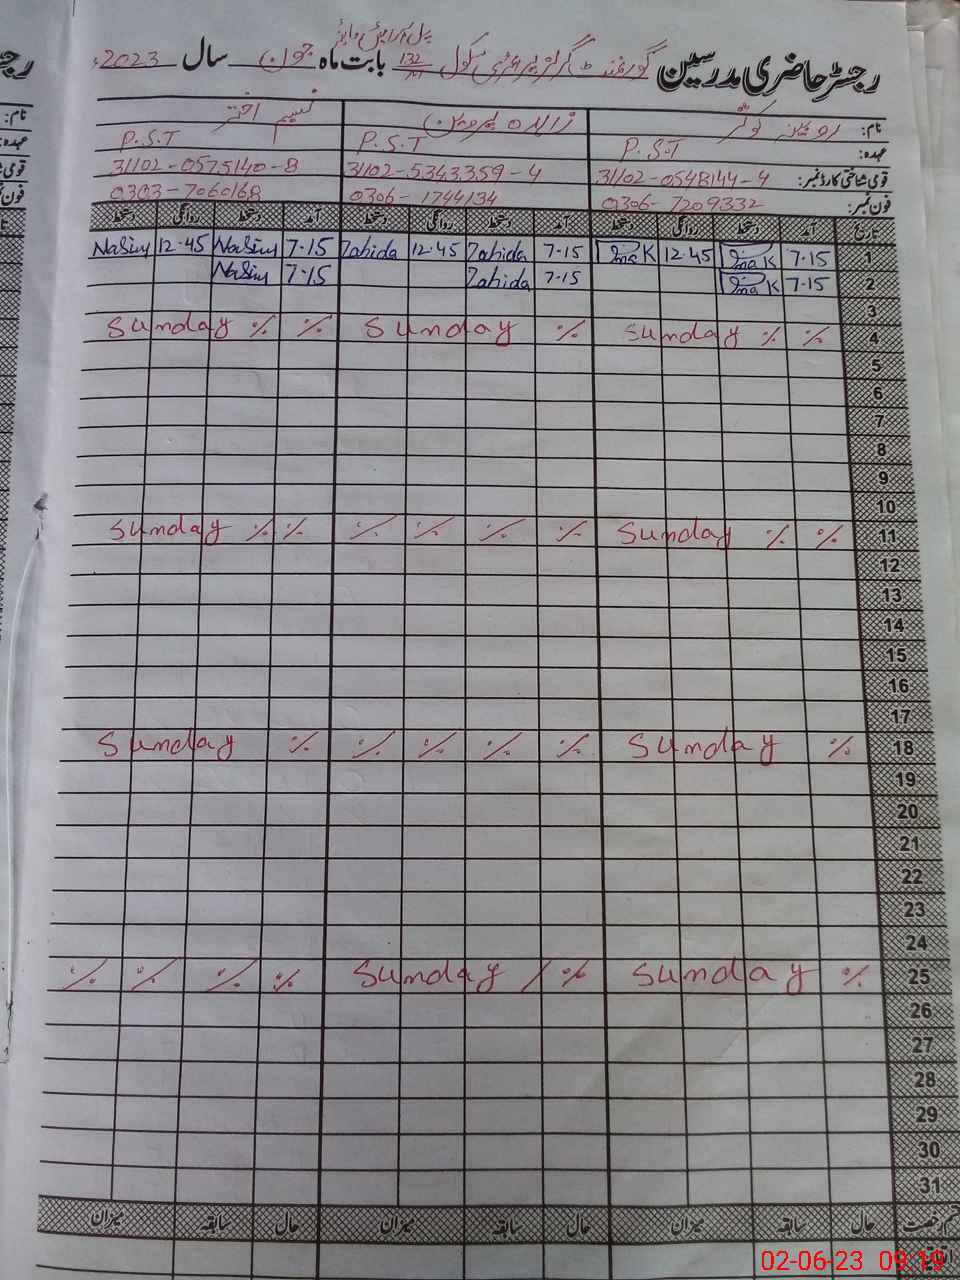 رجسٹر حاضری مدرسین گورنمنٹ گرلز پرائمری سکول 132 بابت ماہ جون سال 2023ء
نام: روبینہ کوثر زاہدہ پروین نسیم اختر
عہدہ: P.S.T P.S.T P.S.T
قومی شناختی کارڈ نمبر: 31102-0548144-4 31102-5343359-4 31102-0575140-8
فون نمبر: 0306-7209332 0306-1744134 0303-7060168
تاریخ آمد دستخط روانگی دستخط آمد دستخط روانگی دستخط آمد دستخط روانگی دستخط
1 7-15 12.45 7-15 Zahida 12.45 Zahida 7-15 Nasim 12.45 Nasim
2 7-15 7-15 Zahida 7-15 Nasim
3
4 Sunday Sunday Sunday
5
6
7
8
9
10
11 Sunday Sunday
12
13
14
15
16
17
18 Sunday Sunday
19
20
21
22
23
24
25 Sunday Sunday
26
27
28
29
30
31
قسم رخصت حال سابقہ میزان حال سابقہ میزان حال سابقہ میزان
02-06-23 09:19